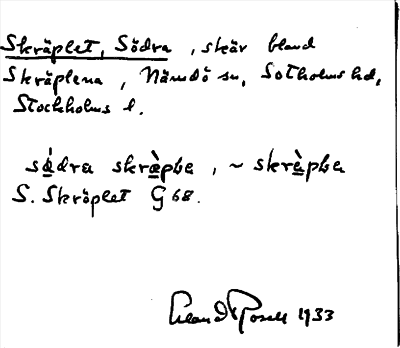 Skräplet, Södra, skär bland
Skräplena, Nämdö sn, Sotholms hd,
Stockholms l.
sö̀dra skræ̀pḷa, ~ skræ̀pḷa
S. Skräplet G 68.
Erland Rosell 1933